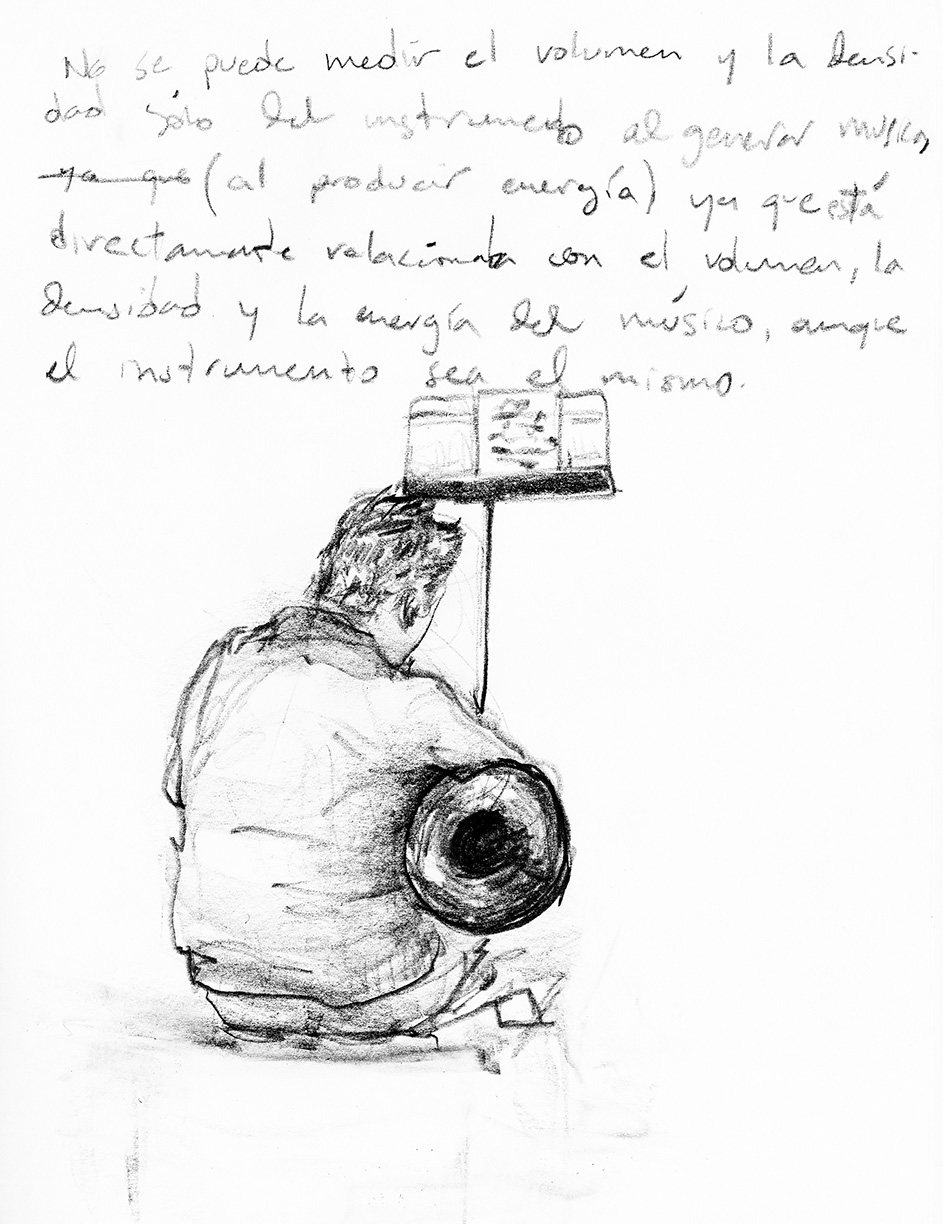 No se puede medir el volumen y la densi-
dad sólo del instrumento al generar música,
ya que (al producir energía) ya que está
directamente relacionada con el volumen, la
densidad y la energía del músico, aunque
el instrumento sea el mismo.